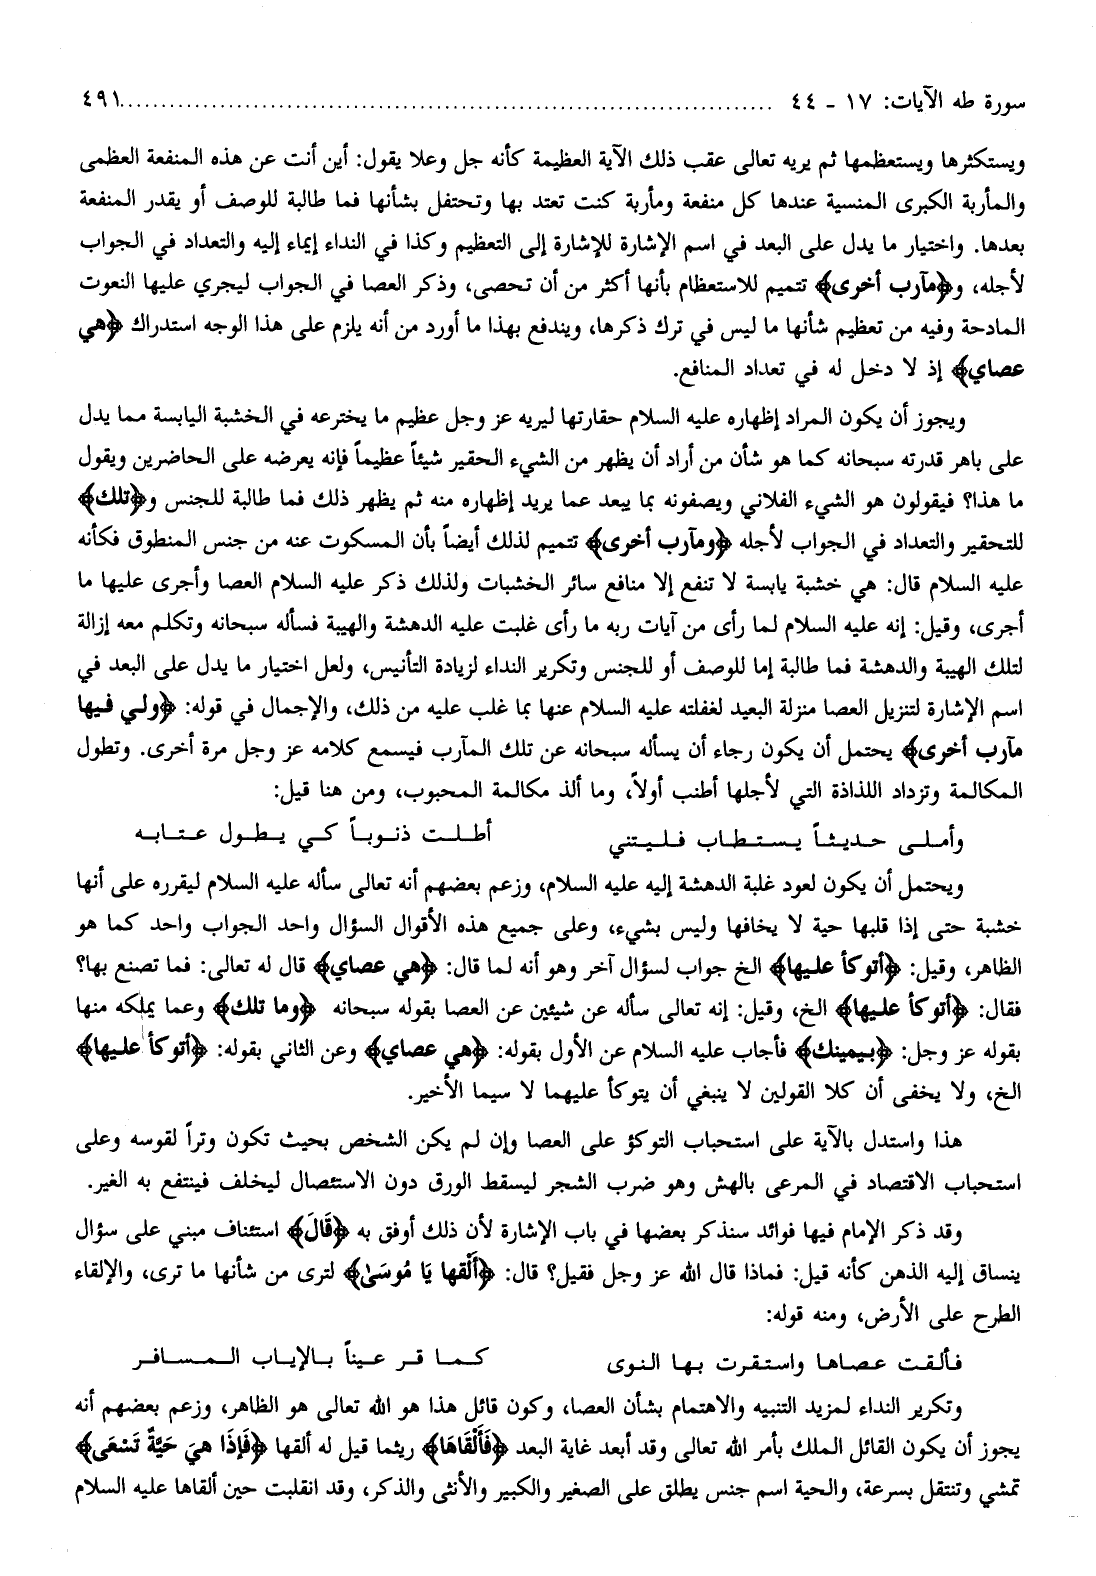 سورة طه الآيات: ١٧ - ٤٤ ................................................................................ ٤٩١
ويستكثرها ويستعظمها ثم يريه تعالى عقب ذلك الآية العظيمة كأنه جل وعلا يقول: أين أنت عن هذه المنفعة العظمى
والمأربة الكبرى المنسية عندها كل منفعة ومأربة كنت تعتد بها وتحتفل بشأنها فما طالبة للوصف أو يقدر المنفعة
بعدها. واختيار ما يدل على البعد في اسم الإشارة للإشارة إلى التعظيم وكذا في النداء إيماء إليه والتعداد في الجواب
لأجله، و﴿مآرب أخرى﴾ تتميم للاستعظام بأنها أكثر من أن تحصى، وذكر العصا في الجواب ليجري عليها النعوت
المادحة وفيه من تعظيم شأنها ما ليس في ترك ذكرها، ويندفع بهذا ما أورد من أنه يلزم على هذا الوجه استدراك ﴿هي
عصاي﴾ إذ لا دخل له في تعداد المنافع.
ويجوز أن يكون المراد إظهاره عليه السلام حقارتها ليريه عز وجل عظيم ما يخترعه في الخشبة اليابسة مما يدل
على باهر قدرته سبحانه كما هو شأن من أراد أن يظهر من الشيء الحقير شيئاً عظيماً فإنه يعرضه على الحاضرين ويقول
ما هذا؟ فيقولون هو الشيء الفلاني ويصفونه بما يبعد عما يريد إظهاره منه ثم يظهر ذلك فما طالبة للجنس و﴿تلك﴾
للتحقير والتعداد في الجواب لأجله ﴿ومآرب أخرى﴾ تتميم لذلك أيضاً بأن المسكوت عنه من جنس المنطوق فكأنه
عليه السلام قال: هي خشبة يابسة لا تنفع إلا منافع سائر الخشبات ولذلك ذكر عليه السلام العصا وأجرى عليها ما
أجرى، وقيل: إنه عليه السلام لما رأى من آيات ربه ما رأى غلبت عليه الدهشة والهيبة فسأله سبحانه وتكلم معه إزالة
لتلك الهيبة والدهشة فما طالبة إما للوصف أو للجنس وتكرير النداء لزيادة التأنيس، ولعل اختيار ما يدل على البعد في
اسم الإشارة لتنزيل العصا منزلة البعيد لغفلته عليه السلام عنها بما غلب عليه من ذلك، والإجمال في قوله: ﴿ولي فيها
مآرب أخرى﴾ يحتمل أن يكون رجاء أن يسأله سبحانه عن تلك المآرب فيسمع كلامه عز وجل مرة أخرى. وتطول
المكالمة وتزداد اللذاذة التي لأجلها أطنب أولاً، وما ألذ مكالمة المحبوب، ومن هنا قيل:
وأملى حديثاً يستطاب فليتني أطلت ذنوباً كي يطول عتابه
ويحتمل أن يكون لعود غلبة الدهشة إليه عليه السلام، وزعم بعضهم أنه تعالى سأله عليه السلام ليقرره على أنها
خشبة حتى إذا قلبها حية لا يخافها وليس بشيء، وعلى جميع هذه الأقوال السؤال واحد الجواب واحد كما هو
الظاهر، وقيل: ﴿أتوكأ عليها﴾ الخ جواب لسؤال آخر وهو أنه لما قال: ﴿هي عصاي﴾ قال له تعالى: فما تصنع بها؟
فقال: ﴿أتوكأ عليها﴾ الخ، وقيل: إنه تعالى سأله عن شيئين عن العصا بقوله سبحانه ﴿وما تلك﴾ وعما يملكه منها
بقوله عز وجل: ﴿بيمينك﴾ فأجاب عليه السلام عن الأول بقوله: ﴿هي عصاي﴾ وعن الثاني بقوله: ﴿أتوكأ عليها﴾
الخ، ولا يخفى أن كلا القولين لا ينبغي أن يتوكأ عليهما لا سيما الأخير.
هذا واستدل بالآية على استحباب التوكؤ على العصا وإن لم يكن الشخص بحيث تكون وتراً لقوسه وعلى
استحباب الاقتصاد في المرعى بالهش وهو ضرب الشجر ليسقط الورق دون الاستئصال ليخلف فينتفع به الغير.
وقد ذكر الإمام فيها فوائد سنذكر بعضها في باب الإشارة لأن ذلك أوفق به ﴿قَالَ﴾ استئناف مبني على سؤال
ينساق إليه الذهن كأنه قيل: فماذا قال الله عز وجل فقيل؟ قال: ﴿أَلْقها يَا مُوسَىٰ﴾ لترى من شأنها ما ترى، والإلقاء
الطرح على الأرض، ومنه قوله:
فألقت عصاها واستقرت بها النوى كما قر عيناً بالإياب المسافر
وتكرير النداء لمزيد التنبيه والاهتمام بشأن العصا، وكون قائل هذا هو الله تعالى هو الظاهر، وزعم بعضهم أنه
يجوز أن يكون القائل الملك بأمر الله تعالى وقد أبعد غاية البعد ﴿فَأَلْقَاهَا﴾ ريثما قيل له ألقها ﴿فَإِذَا هيَ حَيَّةٌ تَسْعَى﴾
تمشي وتنتقل بسرعة، والحية اسم جنس يطلق على الصغير والكبير والأنثى والذكر، وقد انقلبت حين ألقاها عليه السلام